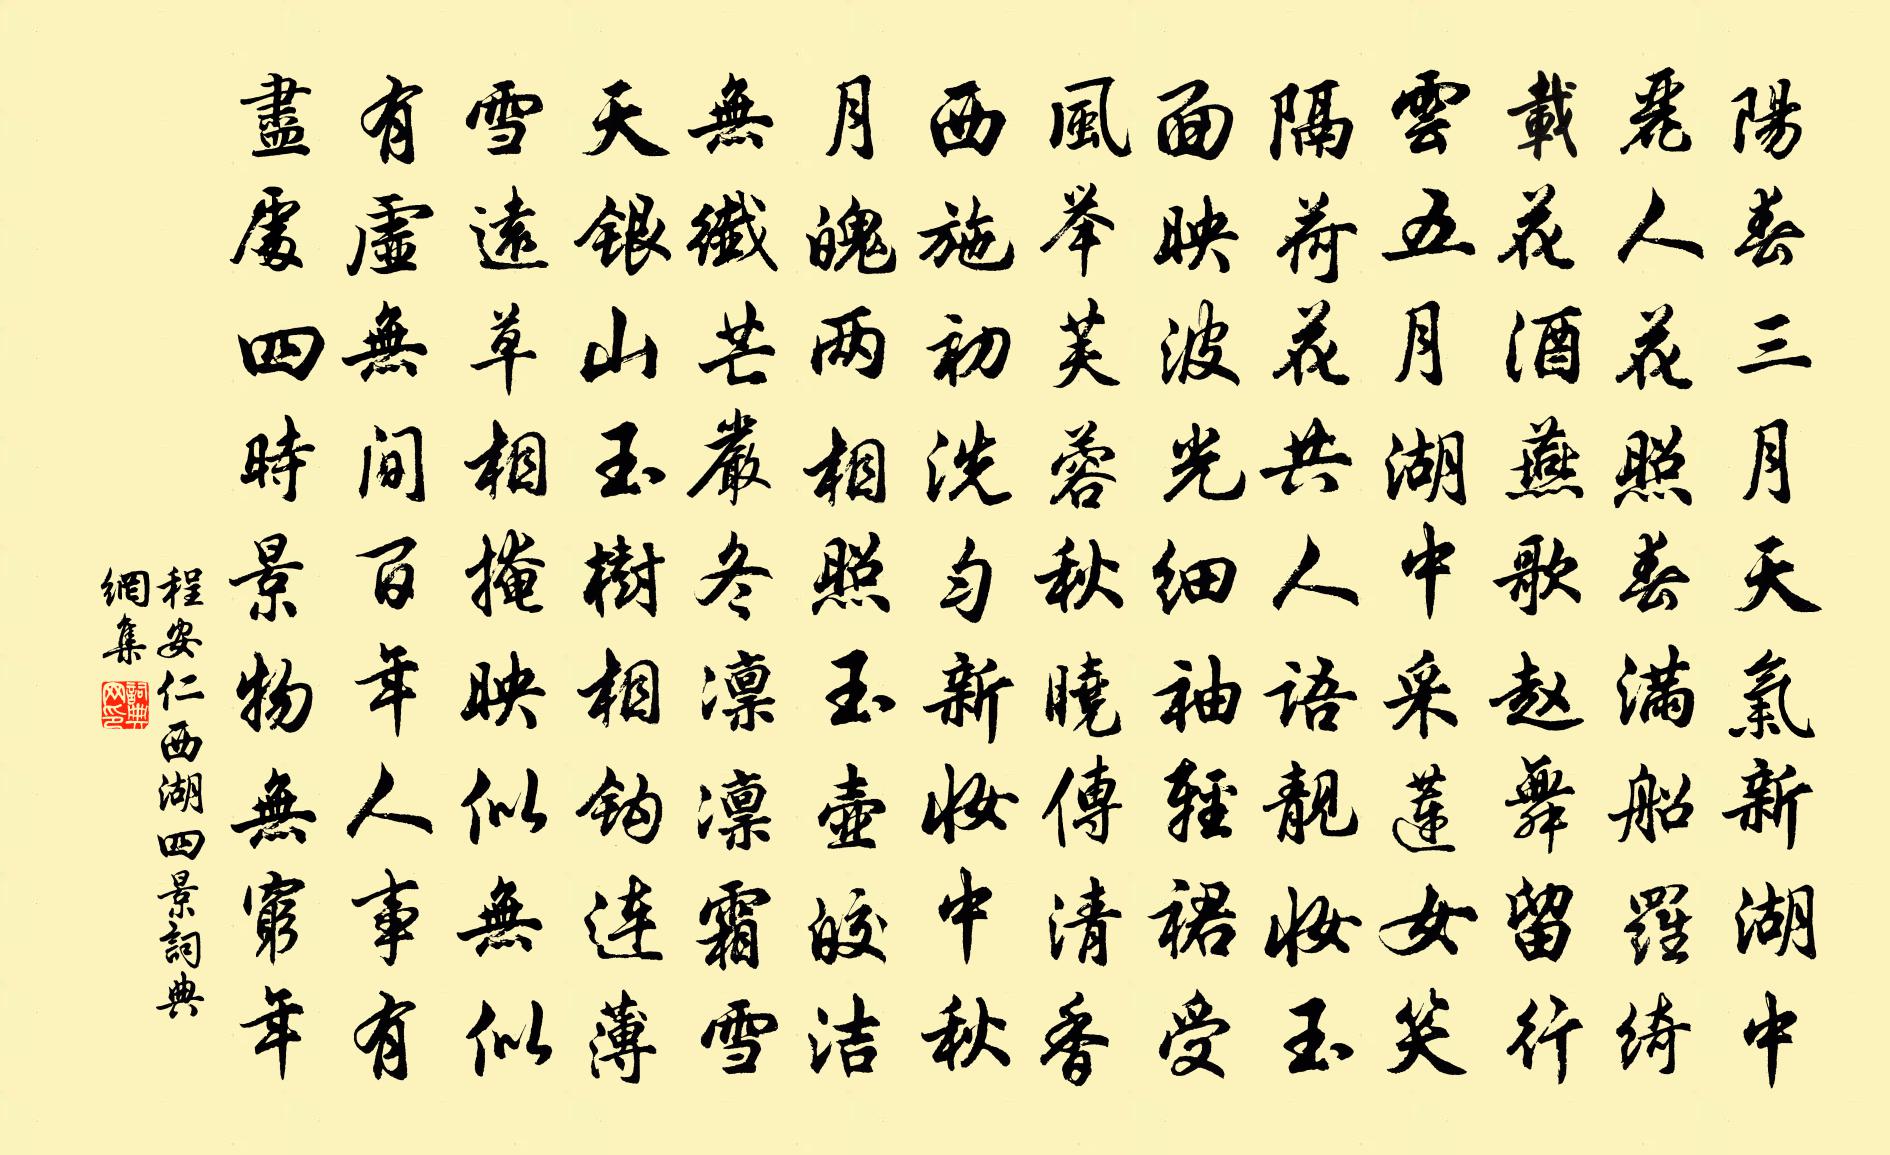 陽春三月天氣新湖中
麗人花照春滿船羅綺
載花酒燕歌赵舞留行
雲五月湖中采蓮女笑
隔荷花共人語靚妝玉
面映波光细袖輕裙受
風举芙蓉秋曉傳清香
西施初洗匀新妝中秋
月魄两相照玉壺皎洁
無纖芒嚴冬凛凛霜雪
天銀山玉樹相鈎连薄
雪遠草相掩映似無似
有虛無间百年人事有
盡處四時景物無窮年
程安仁西湖四景詞典
網集
詞典